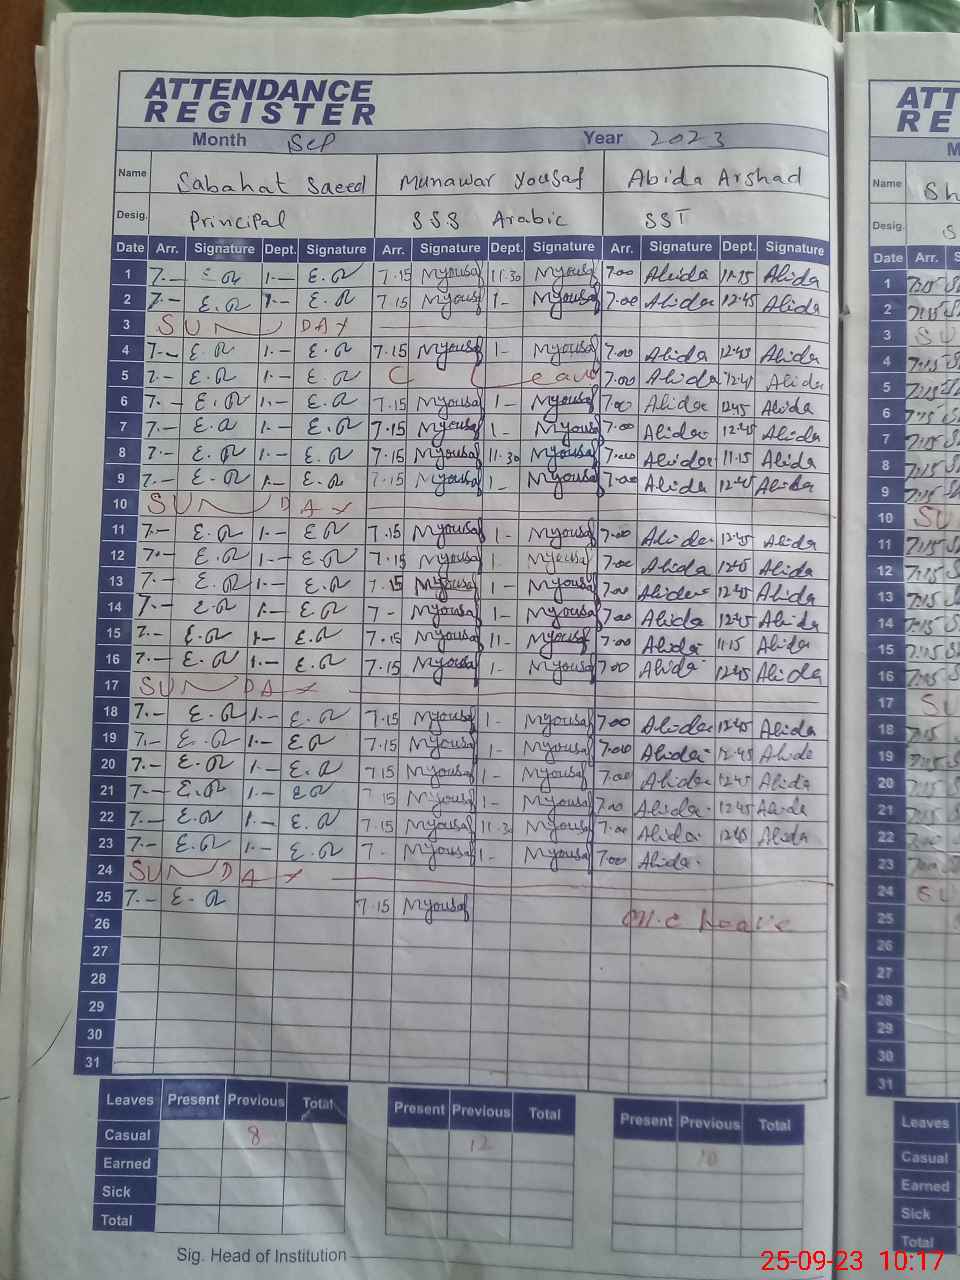 ATTENDANCE
REGISTER
Month Sep Year 2023
Name Sabahat Saeed Munawar Yousaf Abida Arshad
Desig. Principal SSS Arabic SST
Date Arr. Signature Dept. Signature Arr. Signature Dept. Signature Arr. Signature Dept. Signature
1 7.— E.R 1.— E.R 7.15 Myousaf 11.30 Myousaf 7.00 Abida 11.15 Abida
2 7.— E.R 1.— E.R 7.15 Myousaf 1- Myousaf 7.00 Abida 12.45 Abida
3 SUNDAY
4 7.— E.R 1.— E.R 7.15 Myousaf 1- Myousaf 7.00 Abida 12.45 Abida
5 7.— E.R 1.— E.R C Leave 7.00 Abida 12.45 Abida
6 7.— E.R 1.— E.R 7.15 Myousaf 1- Myousaf 7.00 Abida 12.45 Abida
7 7.— E.R 1.— E.R 7.15 Myousaf 1- Myousaf 7.00 Abida 12.45 Abida
8 7.— E.R 1.— E.R 7.15 Myousaf 11.30 Myousaf 7.00 Abida 11.15 Abida
9 7.— E.R 1.— E.R 7.15 Myousaf 1- Myousaf 7.00 Abida 12.45 Abida
10 SUNDAY
11 7.— E.R 1.— E.R 7.15 Myousaf 1- Myousaf 7.00 Abida 12.45 Abida
12 7.— E.R 1.— E.R 7.15 Myousaf 1- Myousaf 7.00 Abida 12.45 Abida
13 7.— E.R 1.— E.R 7.15 Myousaf 1- Myousaf 7.00 Abida 12.45 Abida
14 7.— E.R 1.— E.R 7- Myousaf 1- Myousaf 7.00 Abida 12.45 Abida
15 7.— E.R 1.— E.R 7.15 Myousaf 11- Myousaf 7.00 Abida 11.15 Abida
16 7.— E.R 1.— E.R 7.15 Myousaf 1- Myousaf 7.00 Abida 12.45 Abida
17 SUNDAY
18 7.— E.R 1.— E.R 7.15 Myousaf 1- Myousaf 7.00 Abida 12.45 Abida
19 7.— E.R 1.— E.R 7.15 Myousaf 1- Myousaf 7.00 Abida 12.45 Abida
20 7.— E.R 1.— E.R 7.15 Myousaf 1- Myousaf 7.00 Abida 12.45 Abida
21 7.— E.R 1.— E.R 7.15 Myousaf 1- Myousaf 7.00 Abida 12.45 Abida
22 7.— E.R 1.— E.R 7.15 Myousaf 11.30 Myousaf 7.00 Abida 12.45 Abida
23 7.— E.R 1.— E.R 7- Myousaf 1- Myousaf 7.00 Abida
24 SUNDAY
25 7.— E.R 7.15 Myousaf Leave
26
27
28
29
30
31
Leaves Present Previous Total Present Previous Total Present Previous Total
Casual 8 12 10
Earned
Sick
Total
Sig. Head of Institution
Name
Desig.
Date Arr.
1 7.15
2 7.15
3 SU
4 7.15
5 7.15
6 7.15
7 7.15
8 7.15
9 7.15
10 SU
11 7.15
12 7.15
13 7.15
14 7.15
15 7.15
16 7.15
17 SU
18 7.15
19 7.15
20 7.15
21 7.15
22
23
24 SU
25
26
27
28
29
30
31
Leaves
Casual
Earned
Sick
Total
25-09-23 10:17